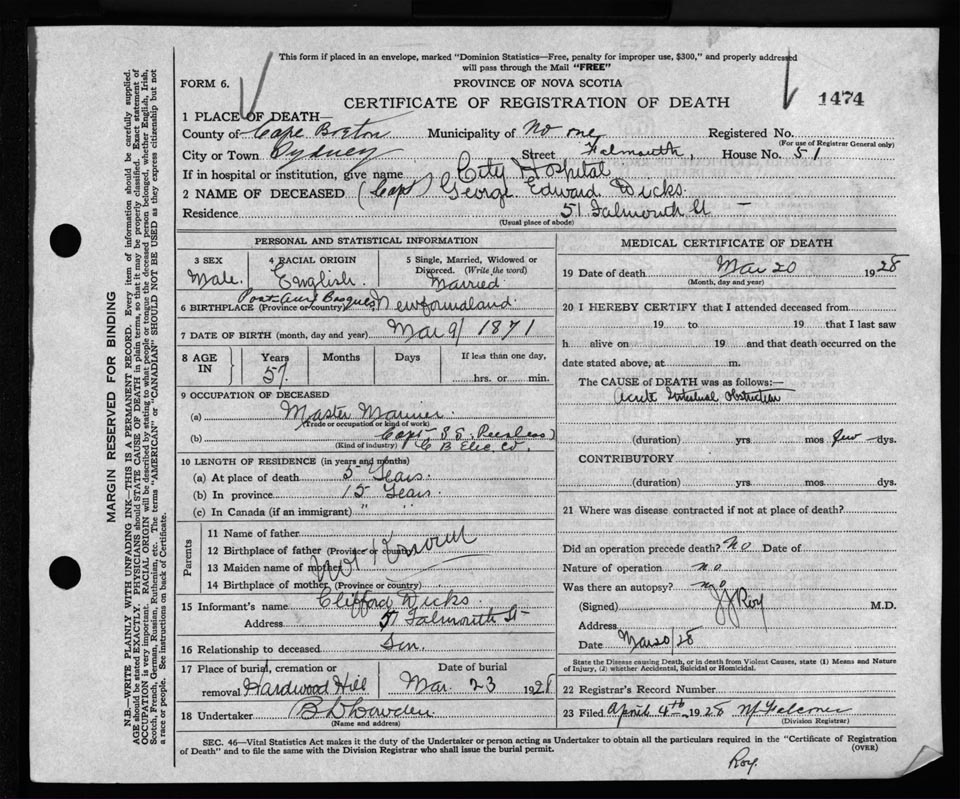 This form if placed in an envelope, marked "Dominion Statistics—Free, penalty for improper use, $300," and properly addressed
will pass through the Mail "FREE"
FORM 6.
PROVINCE OF NOVA SCOTIA
CERTIFICATE OF REGISTRATION OF DEATH
1474
1 PLACE OF DEATH—
County of Cape Breton Municipality of No one Registered No.
(For use of Registrar General only)
City or Town Sydney Street Falmouth, House No. 51
If in hospital or institution, give name City Hospital
2 NAME OF DECEASED (Capt) George Edward Dicks
Residence 51 Falmouth St
(Usual place of abode)
PERSONAL AND STATISTICAL INFORMATION
3 SEX
Male.
4 RACIAL ORIGIN
English.
5 Single, Married, Widowed or
Divorced. (Write the word)
Married
6 BIRTHPLACE (Province or country) Port Aux Basques Newfoundland
7 DATE OF BIRTH (month, day and year) Mar 9/1871
8 AGE
IN
Years
57
Months
Days
If less than one day,
hrs. or min.
9 OCCUPATION OF DECEASED
(a) Master Mariner
(Trade or occupation or kind of work)
(b) Capt S S Peerless
(Kind of industry) C B Elec. Co.
10 LENGTH OF RESIDENCE (in years and months)
(a) At place of death 5 Years
(b) In province 15 Years
(c) In Canada (if an immigrant) " "
Parents
11 Name of father
12 Birthplace of father (Province or country)
13 Maiden name of mother
14 Birthplace of mother (Province or country)
Not Known
15 Informant's name Clifford Dicks
Address 51 Falmouth St
16 Relationship to deceased Son
17 Place of burial, cremation or
removal Hardwood Hill
Date of burial
Mar. 23 1928
18 Undertaker
(Name and address)
MEDICAL CERTIFICATE OF DEATH
19 Date of death Mar 20 1928
(Month, day and year)
20 I HEREBY CERTIFY that I attended deceased from
19 to 19 that I last saw
h alive on 19 and that death occurred on the
date stated above, at m.
The CAUSE of DEATH was as follows:—
Acute Intestinal Obstruction
(duration) yrs. mos few dys.
CONTRIBUTORY
(duration) yrs. mos. dys.
21 Where was disease contracted if not at place of death?
Did an operation precede death? No Date of
Nature of operation no
Was there an autopsy? no
(Signed) J J Roy M.D.
Address
Date Mar 20/28
State the Disease causing Death, or in death from Violent Causes, state (1) Means and Nature
of Injury, (2) whether Accidental, Suicidal or Homicidal.
22 Registrar's Record Number
23 Filed April 4th 1928
(Division Registrar)
SEC. 46—Vital Statistics Act makes it the duty of the Undertaker or person acting as Undertaker to obtain all the particulars required in the "Certificate of Registration
of Death" and to file the same with the Division Registrar who shall issue the burial permit.
(OVER)
Roy
MARGIN RESERVED FOR BINDING
N.B.—WRITE PLAINLY WITH UNFADING INK—THIS IS A PERMANENT RECORD. Every item of information should be carefully supplied.
AGE should be stated EXACTLY. PHYSICIANS should STATE CAUSE OF DEATH in plain terms, so that it may be properly classified. Exact statement of
OCCUPATION is very important. RACIAL ORIGIN will be described by stating to what people or tongue the deceased person belonged, whether English, Irish,
Scotch, French, German, Russian, Ruthenian, etc. The terms "AMERICAN" or "CANADIAN" SHOULD NOT BE USED as they express citizenship but not
a race or people. See instructions on back of Certificate.